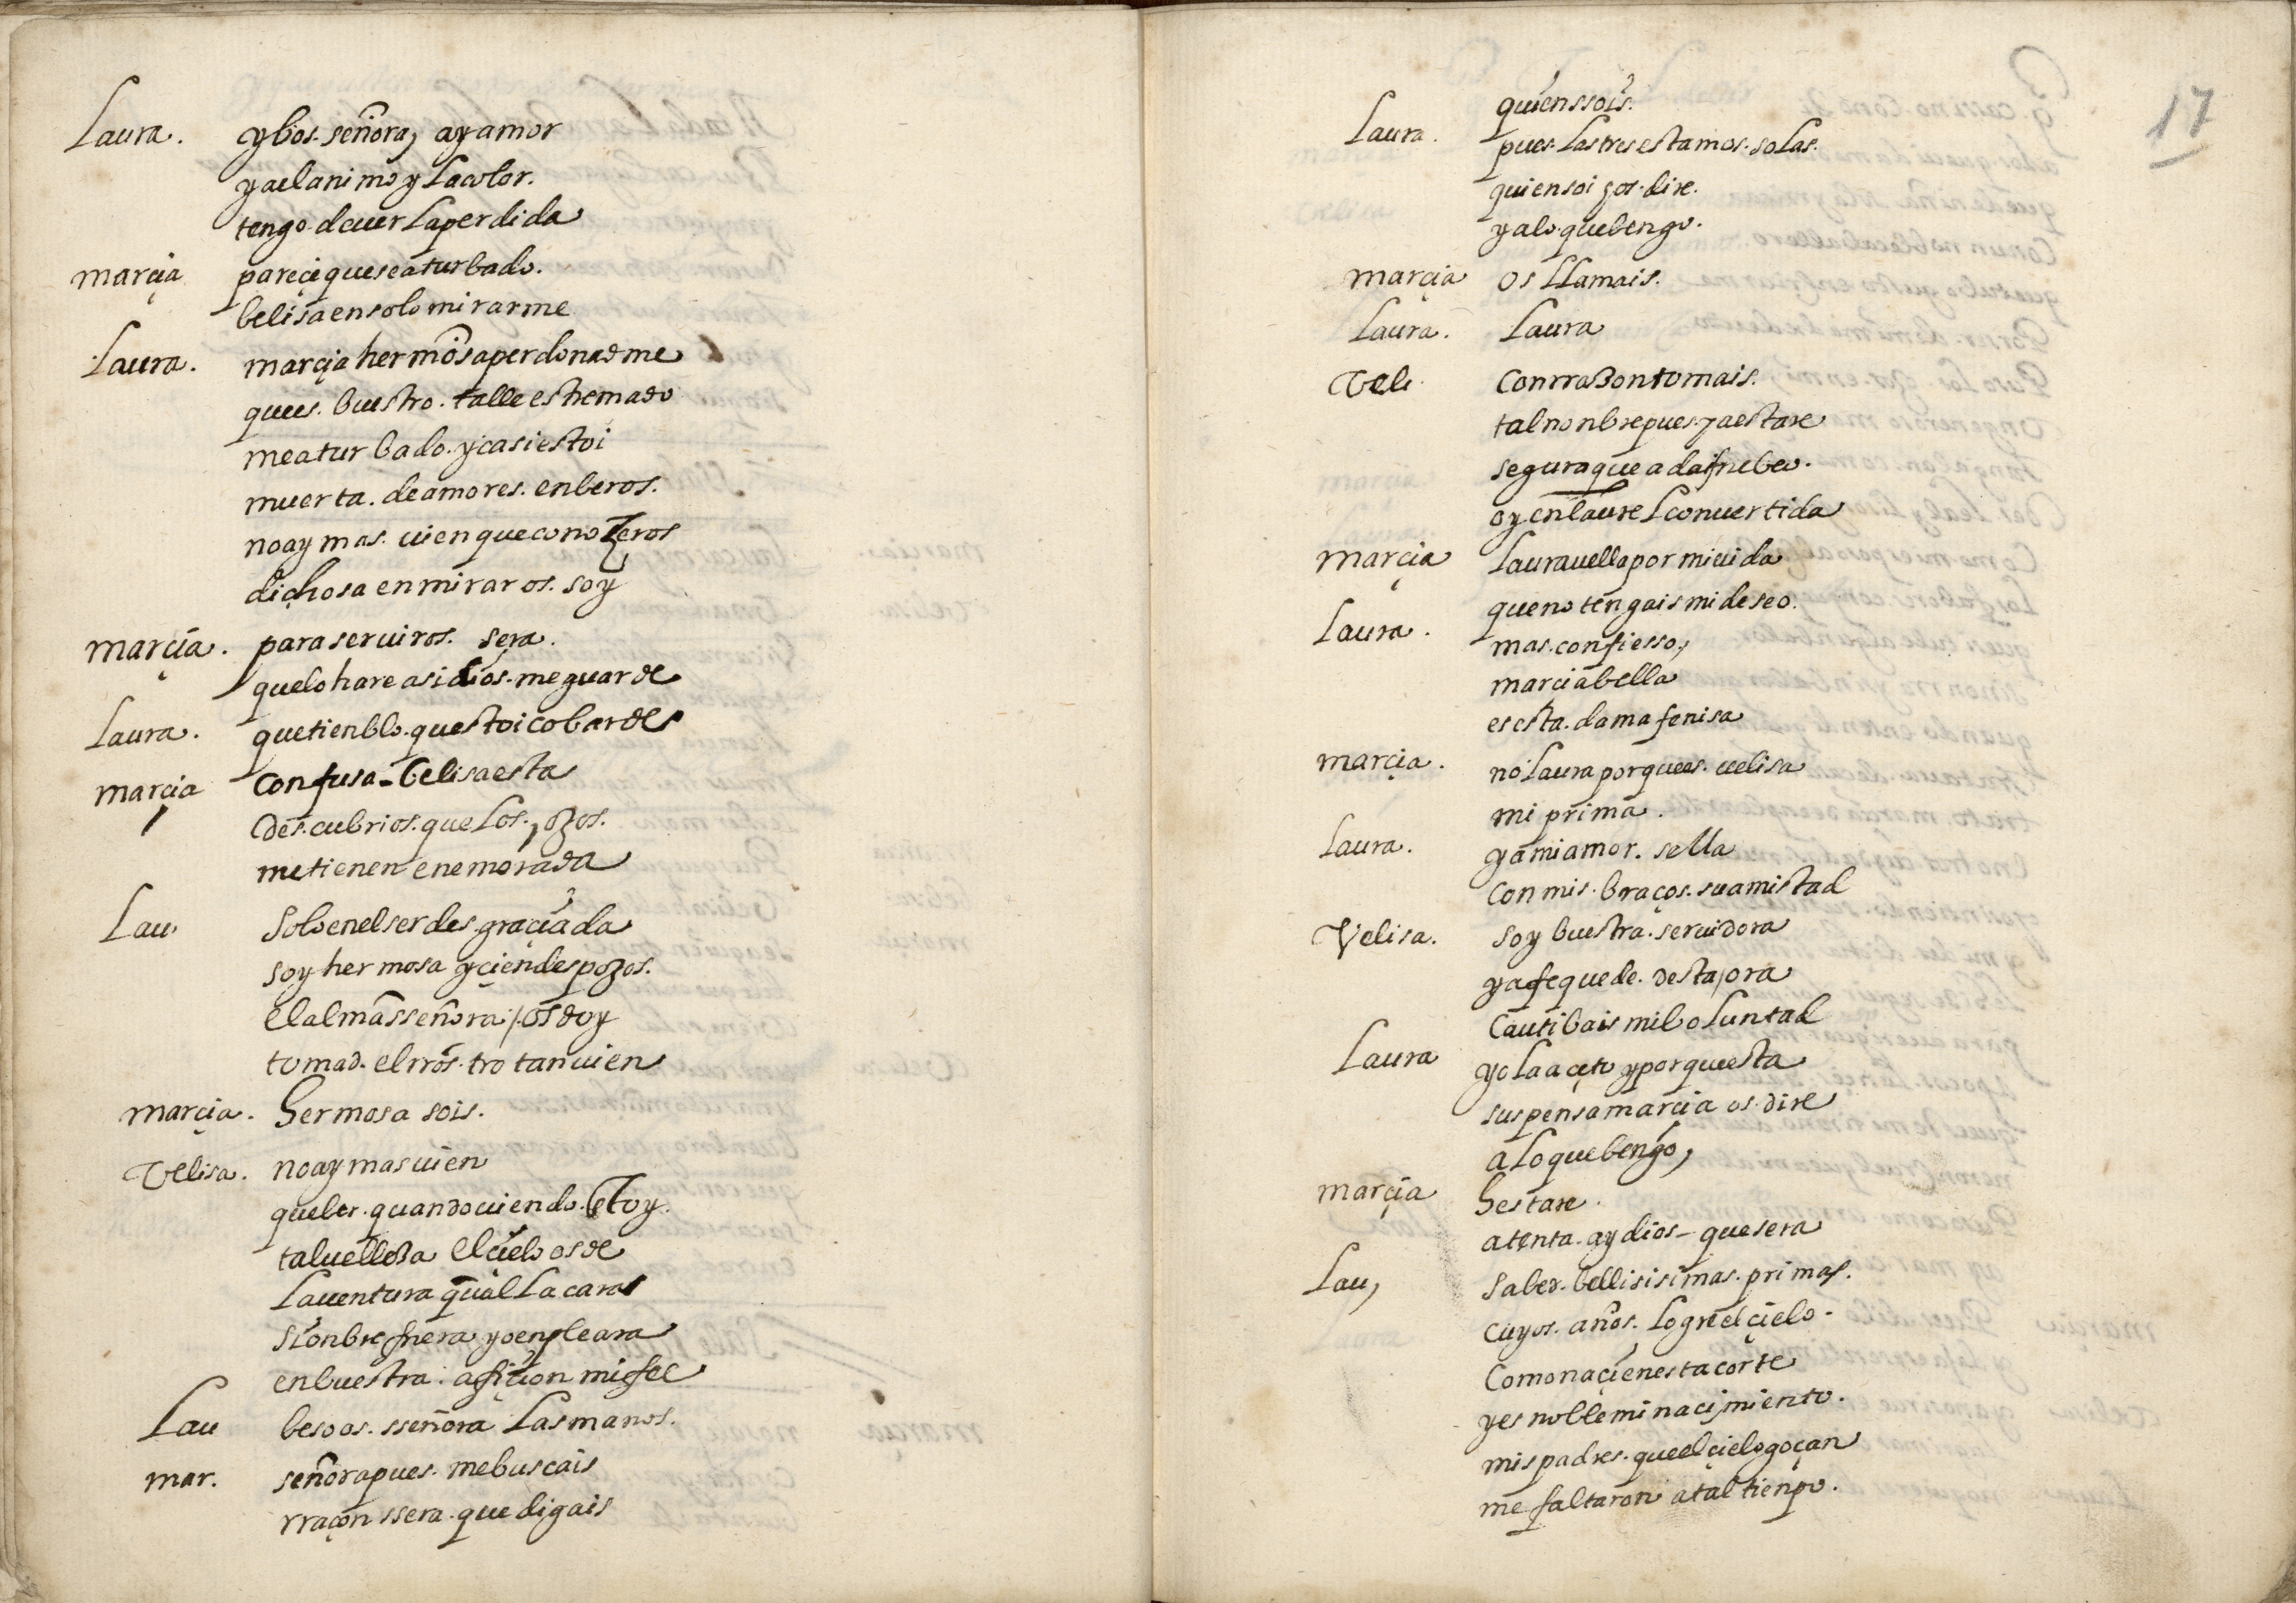 Laura. y bos. señora, ay amor
ya el animo y La color.
tengo de uer La perdida
marçia pareçe que se a turbado.
belisa en solo mirarme
Laura. marçia hermosa perdonadme
que es. buestro. talle estremado
me a turbado. y casi estoi
muerta. de amores. en beros.
no ay mas. uien que conozeros
dichosa en miraros. soy
marçia. para seruiros. sera.
que lo hare asi dios. me guarde
Laura. que tienblo. que stoi cobarde
marçia Confusa - belisa esta
des.cubrios. que Los. ojos.
me tienen enemorada
Lau Solo en el ser des.graçiada
soy hermosa y çien despojos.
El alma sseñora, os doy
tomad. el rros.tro tan uien
marçia. hermosa sois.
Velisa. no ay mas uien
que ber. quando uiendo. estoy.
tal uelleza El çielo os de
La uentura qual La cara
Si onbre fuera yo enpleara
en buestra. afiçion mi fee
Lau beso os. sseñora Las manos.
mar. señora pues. me buscais
rraçon ssera. que digais
17
quien ssois.
Laura. pues. Las tres estamos. solas.
quien soi yos. dire.
y a lo que bengo.
marçia os LLamais.
Laura. Laura
Veli. Con rrazon tomais.
tal nonbre pues. ya estare
segura que a dafne beo.
oy en laurel conuertida
marçia Laura uella por mi uida
que no tengais mi deseo.
Laura. mas. confiesso,
marcia bella
es esta. dama fenisa
marçia. no Laura porque es. uelisa
mi prima.
Laura. y a mi amor. sella
Con mis. braços. su amistad
Velisa. soy buestra. seruidora
y a fe que de. desta, ora
Cautibais mi boluntad
Laura yo La açeto y porque esta
suspensa marçia os. dire
a Lo que bengo,
marçia hestare.
atenta. ay dios - que sera
Lau, Sabed. bellisisimas. primas.
Cuyos. años. Logre el çielo.
Como naçi en esta corte
y es noble mi naçimiento.
mis padres. que el çielo goçan
me faltaron a tal tienpo.